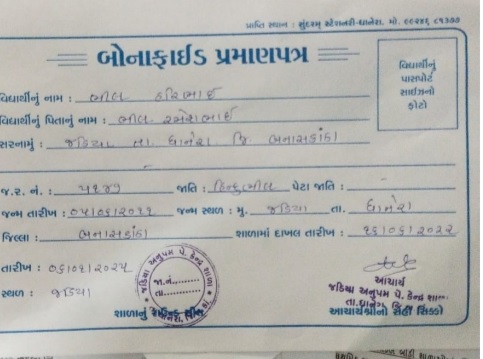 પ્રાપ્તિ સ્થાન : સુંદરમ્ સ્ટેશનરી-ધાનેરા. મો. ૯૯૨૪૬ ૮૧૩૭૭
બોનાફાઈડ પ્રમાણપત્ર
વિદ્યાર્થીનું પાસપોર્ટ સાઈઝનો ફોટો
વિદ્યાર્થીનું નામ : ભીલ હરિભાઈ
વિદ્યાર્થીનું પિતાનું નામ : ભીલ રમેશભાઈ
સરનામું : જડિયા તા. ધાનેરા જિ. બનાસકાંઠા
જ.ર. નં. : ૫૨૪૭ જાતિ : હિન્દુ ભીલ પેટા જાતિ :
જન્મ તારીખ : ૦૫/૦૬/૨૦૧૧ જન્મ સ્થળ : મુ. જડિયા તા. ધાનેરા
જિલ્લા : બનાસકાંઠા શાળામાં દાખલ તારીખ : ૧૬/૦૬/૨૦૨૨
તારીખ : ૦૬/૦૧/૨૦૨૫
સ્થળ : જડિયા
જડિયા અનુપમ પે. કેન્દ્ર શાળા
જા.નં.
તા.
આચાર્ય
જડિયા અનુપમ પે. કેન્દ્ર શાળા
તા.ધાનેરા, જિ
શાળાનું
આચાર્યશ્રીની સહી સિક્કો